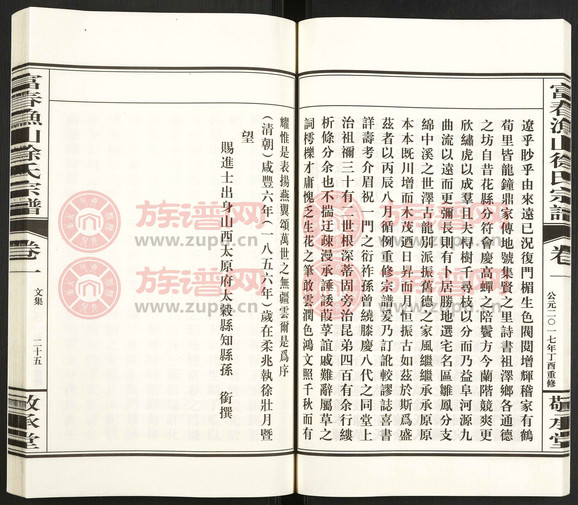 富春漁山徐氏宗譜
卷一
公元二〇一七年丁酉重修
敬承堂
遼乎眇乎由來遠已況復門楣生色閥閱增輝稽家有鶴
荀里皆龍鐘鼎家傳地號集賢之里詩書祖澤鄉各通德
之坊自昔花縣分符會慶高蟬之陪鬢方今蘭階競爽更
欣繡虎以成羣且夫桪樹千尋枝以分而乃益阜河源九
曲流以遠而更彌長則有卜居勝地選宅名區雛鳳分支
綿中溪之世澤古龍別派振舊德之家風繼繼承承原原
本本既川增而木茂還日昇而月恒振古如茲於斯爲盛
茲者以丙辰八月循例重修宗譜爰乃訂訛較謬誌喜書
詳壽考介眉祝一門之衍祚孫曾繞膝慶八代之同堂上
治祖禰三十有一世根深蒂固旁治昆弟四百有余行縷
析條分余也不揣迂疎漫承諈諉葭莩誼戚難辭屬草之
詞樗櫟才庸愧乏生花之筆敢雲潤色鴻文照千秋而有
耀惟是表揚燕翼頌萬世之無疆雲爾是爲序
(清朝)咸豐六年(一八五六年)歲在柔兆執徐壯月暨
望
賜進士出身山西太原府太穀縣知縣孫 銜撰
富春漁山徐氏宗譜
卷一
文集
二十五
敬承堂
族谱网
www.zupu.cn